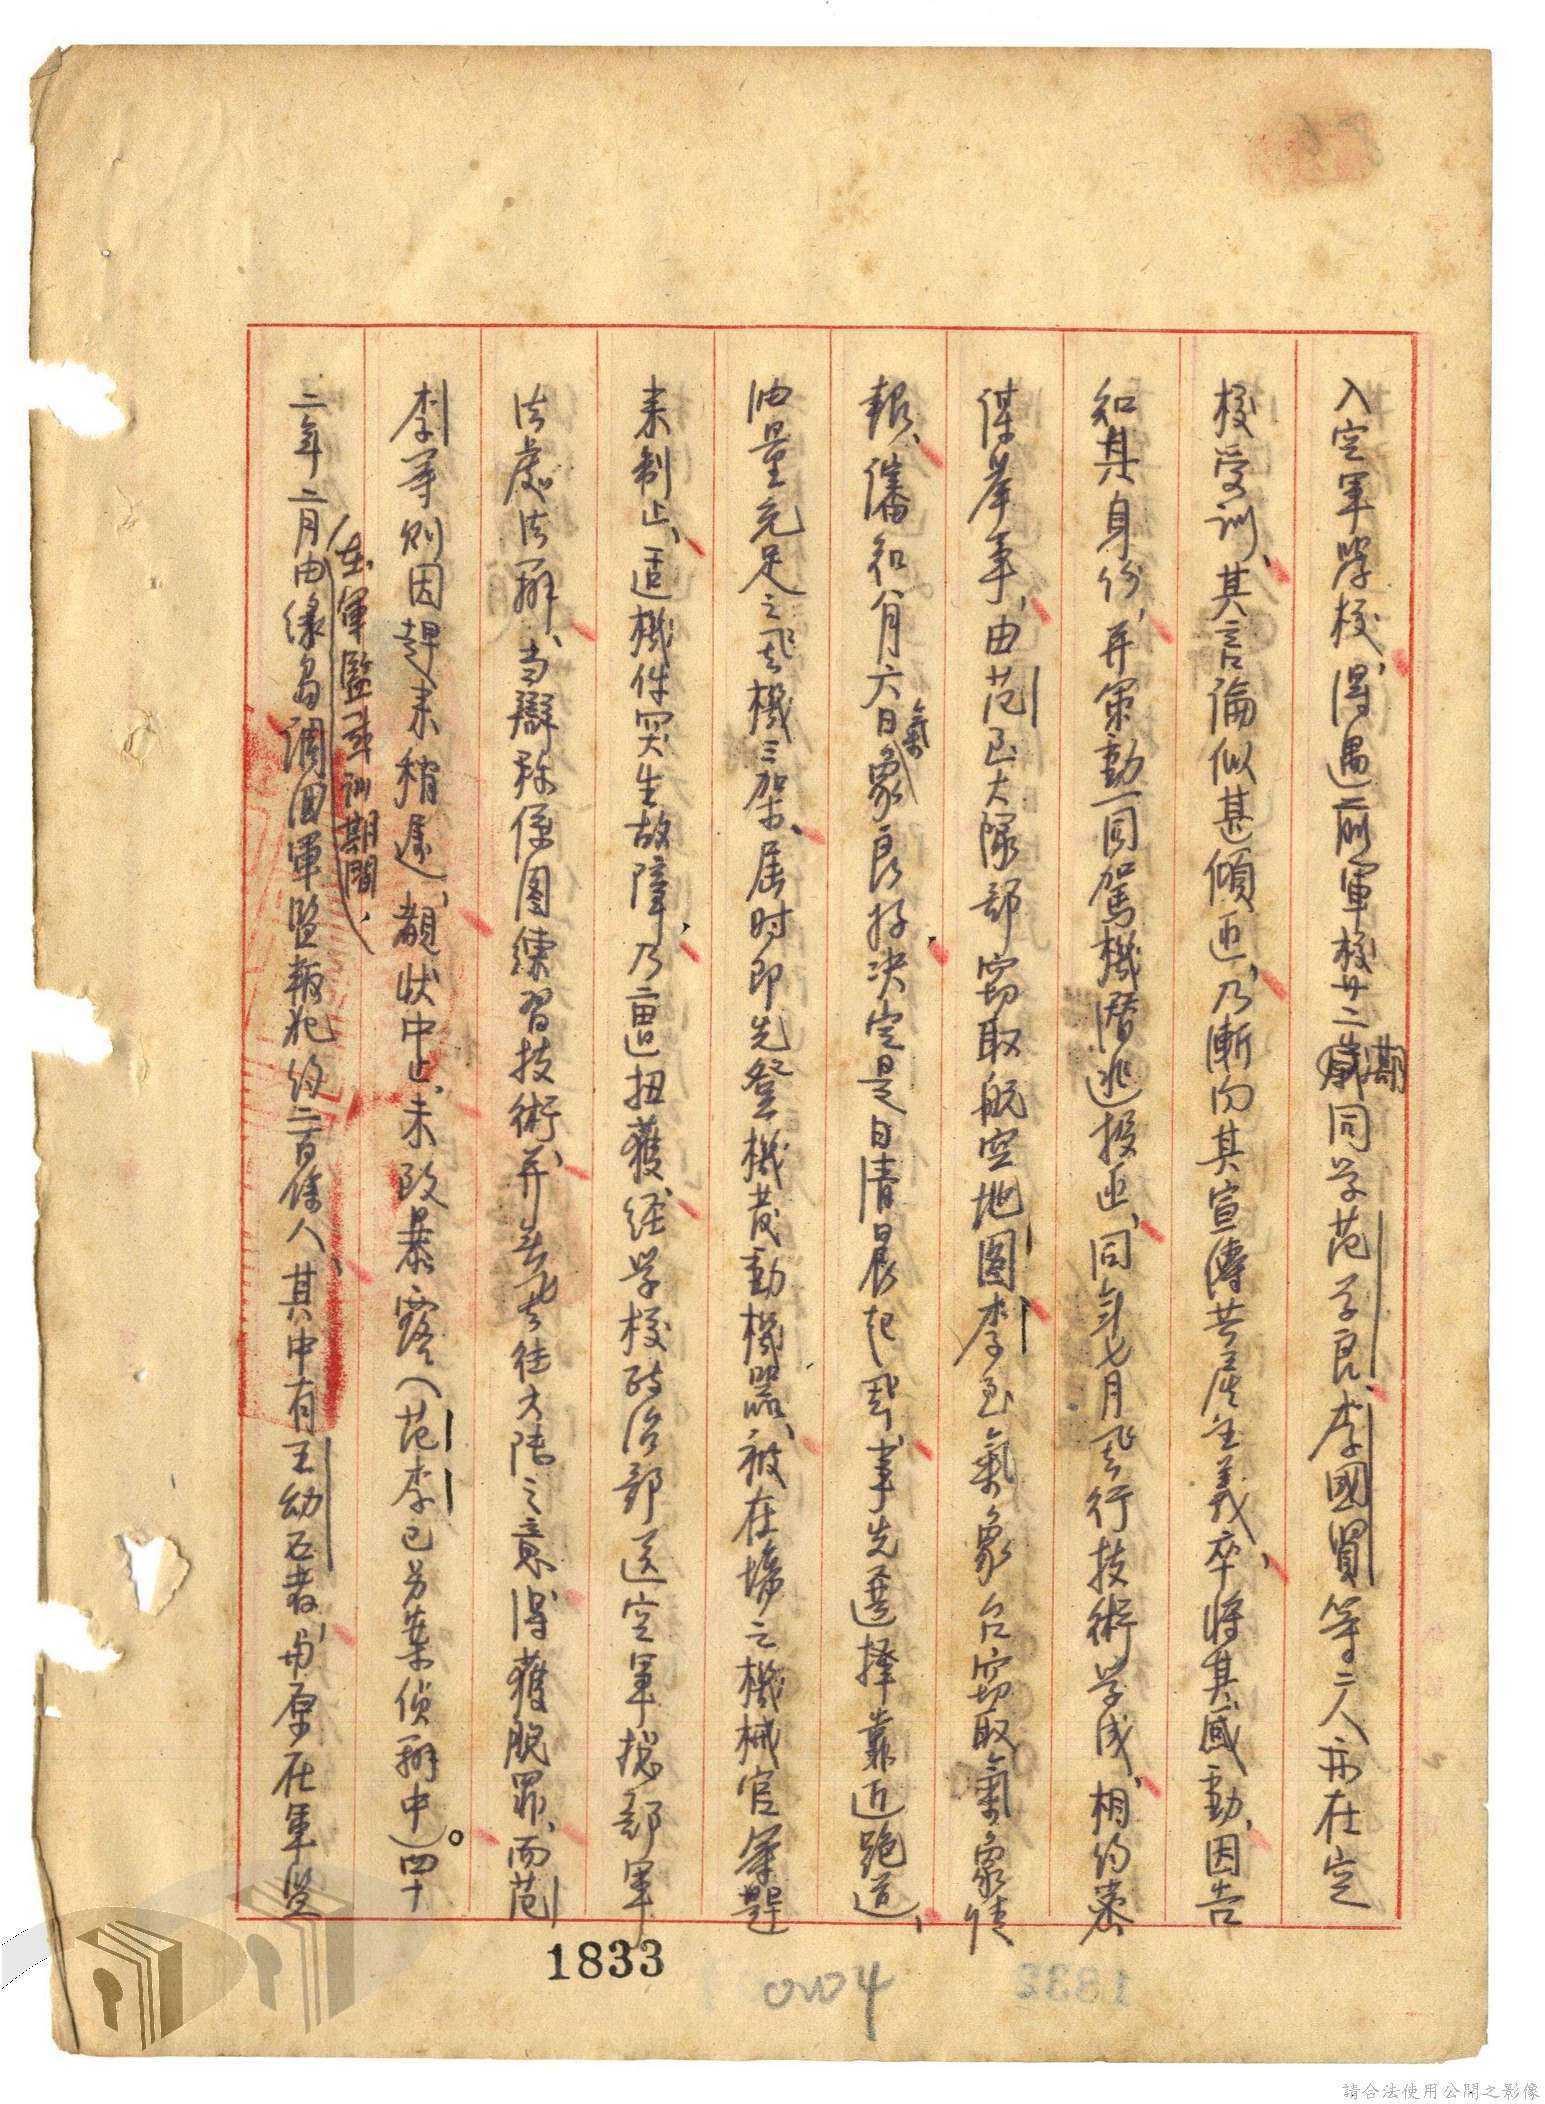 入空軍學校，得遇前軍校廿二期同学范学良、李國賢等二人亦在空
校受訓，其言論似甚傾匪，乃漸向其宣傳共產主義，卒將其感動，因告
知其身份，并策動一同駕機潛逃投匪，同年七月飛行技術学成，相約密
謀举事，由范至大隊部窃取航空地图，李至氣象台窃取氣象情
報，僅知八月六日氣象良好，决定是日清晨起飛，事先選擇靠近跑道，
油量充足之飛機三架，屆时即先登機发動機器，被在場之機械官
来制止，適機件突生故障，乃遭扭獲，経学校政治部送空軍總部軍
法處法辦，当辯称係图練習技術，并無飛往大陸之意，得獲脫罪，而范
李等則因趕来稍遲，覩狀中止，未致暴露（范李已另案偵辦中）。四十
在軍監受訓期間，
二年二月由綠島調回軍監叛犯約二百餘人，其中有王幼石者，与原在軍監
1833
0004
1832
請合法使用公開之影像